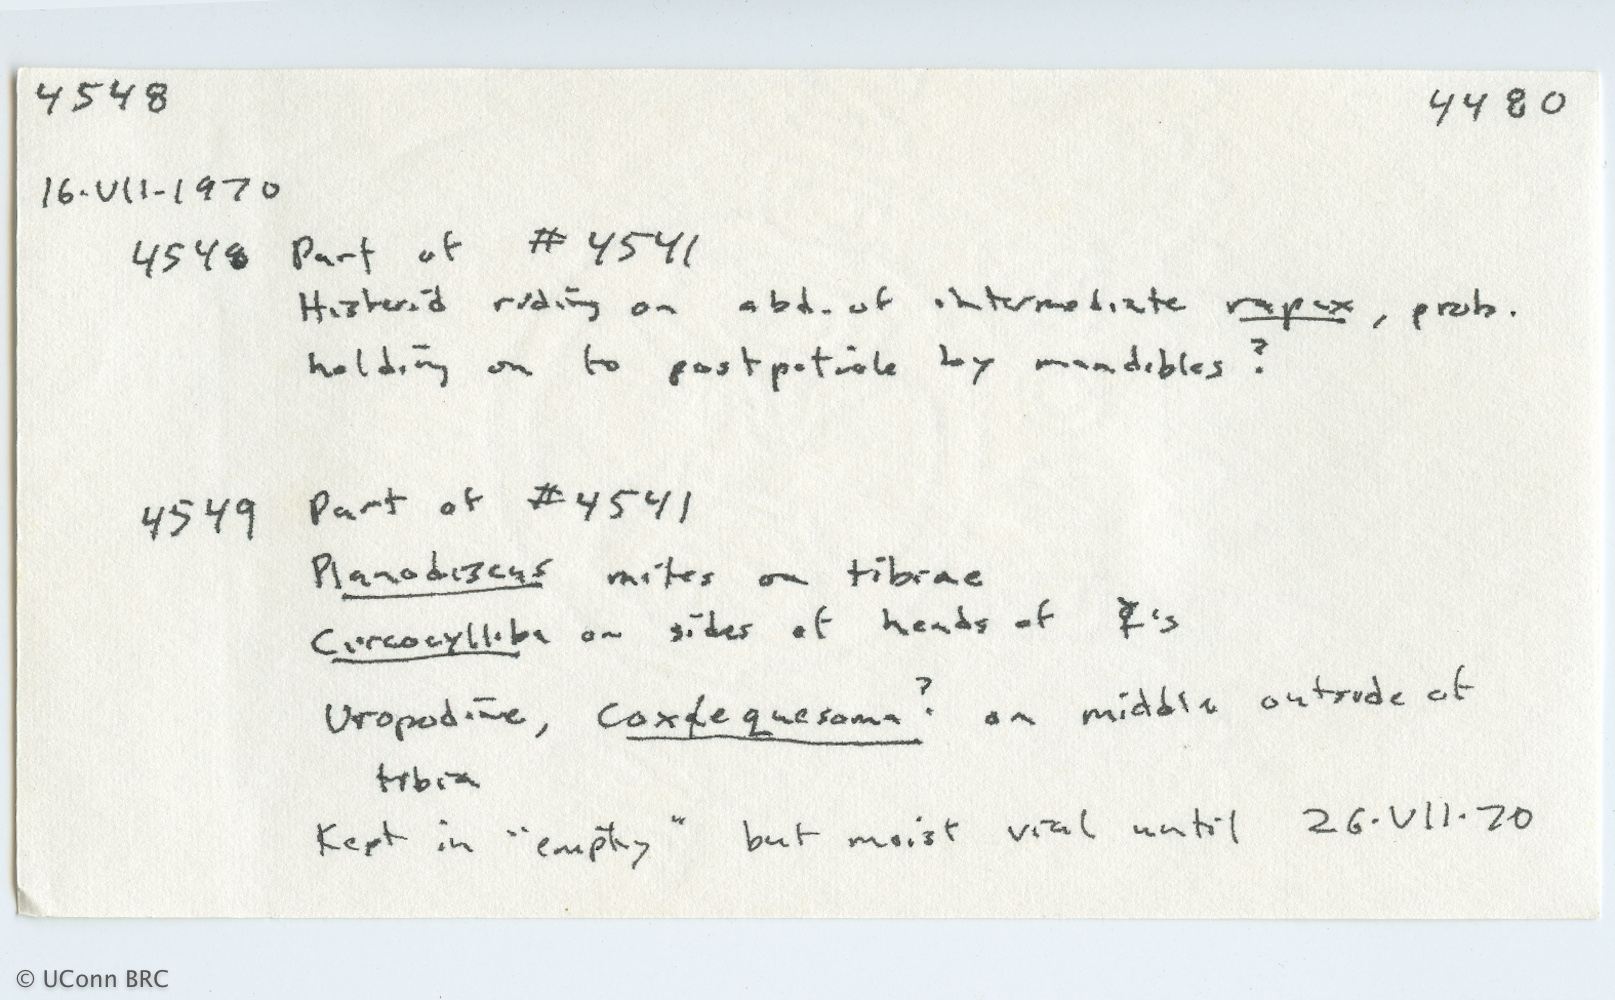 4548 4480
16-VII-1970
4548 Part of # 4541
Histerid riding on abd. of intermediate rapax, prob.
holding on to postpetiole by mandibles?
4549 Part of #4541
Planodiscus mites on tibiae
Circocylliba on sides of heads of ☿'s
Uropodine, Coxequesoma? on middle outside of
tibia
Kept in "empty" but moist vial until 26-VII-70
© UConn BRC